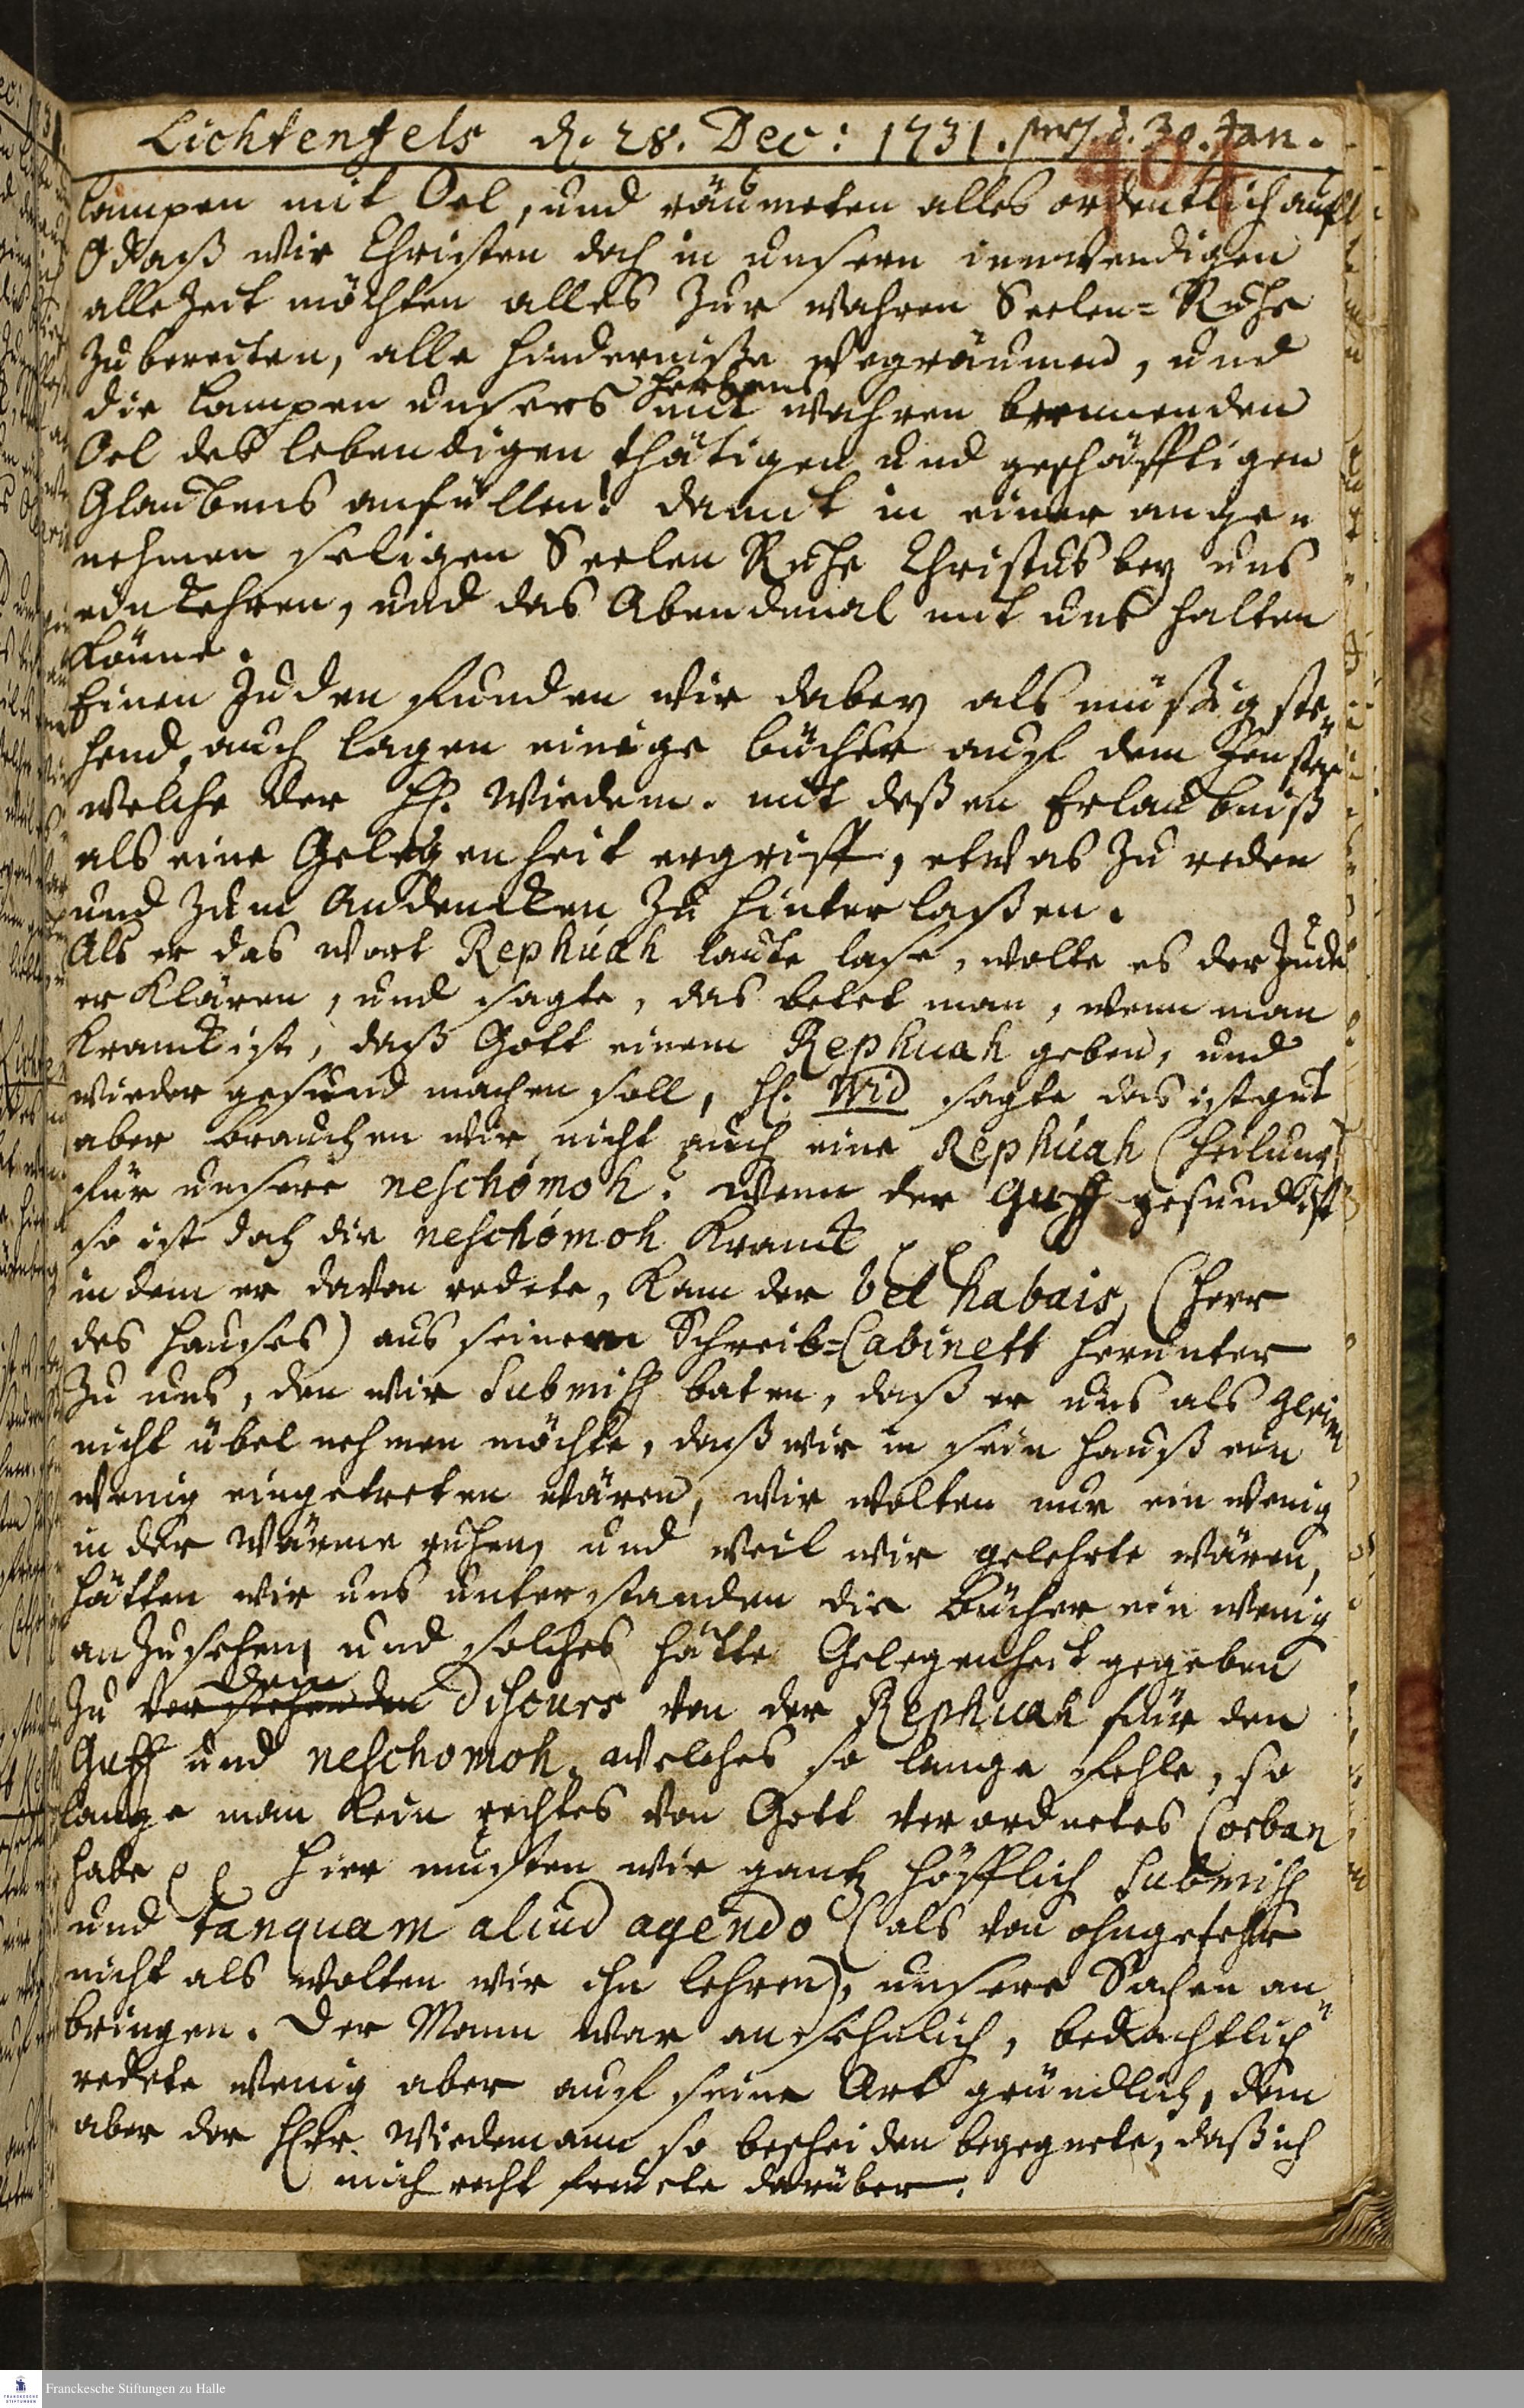 Lichtenfels d. 28. Dec: 1731. d. 30. Jan.
404
Lampen mit Oel, und räumeten alles ordentlich auf
O daß wir Christen doch in unsern inwendigen
allezeit möchten alles zur wahren Seelen-Ruhe
zubereiten, alle hinderniße wegräumen, und
hertzens
die Lampen unsers mit wahren brennenden
Oel des lebendigen thätigen und geschäfftigen
Glaubens anfüllen! damit in einer ange-
nehmen seligen Seelen Ruhe Christus bey uns
einkehren, und das Abendmal mit uns halten
könne.
Einen Juden funden wir dabey als müßig ste-
hend, auch lagen einige bücher auf dem Fenster
welche der H. Wiedem. mit deßen Erlaubniß
als eine Gelegenheit ergriff, etwas zu reden
und zum Andencken zu hinterlaßen.
Als er das wort Rephúah laute lase, wolte es der Jude
erklären, und sagte, das betet man, wenn man
kranck ist, daß Gott einem Rephuah geben, und
wieder gesund machen soll, H. Wid sagte das ist gut
aber brauchen wir nicht auch eine Rephúah (Heilung)
für unsere neschómoh. wenn der Guff gesund ist
so ist doch die neschómoh kranck
in dem er davon redete, kam der bel habais, (Herr
des Hauses) aus seinem Schreib-Cabinett herunter
zu uns, den wir submiss baten, daß er uns als
nicht übel nehmen möchte, daß wir in sein Hauß ein
wenig eingetreten wären, wir wolten nur ein wenig
in der Wärme ruhen, und weil wir gelehrte wären,
hätten wir uns unterstanden die Bücher ein wenig
anzusehen, und solches hätte Gelegenheit gegeben
dem
zu vorstehenden Discurs von der Rephuah für den
Guff und neschomoh, welches so lange fehle, so
lange man kein rechtes von Gott verordnetes Corban
habe Hier musten wir gantz höfflich submiss
und tanquam aliud agendo (als von ohngefehr
nicht als wolten wir ihn lehren), unsere Sachen an-
bringen. Der Mann war ansehnlich, bedachtlich
redete wenig aber auf seine Art gründlich, dem
aber der Herr. Wiedemann so bescheiden begegnete, daß ich
mich recht freuete darüber.
Franckesche Stiftungen zu Halle